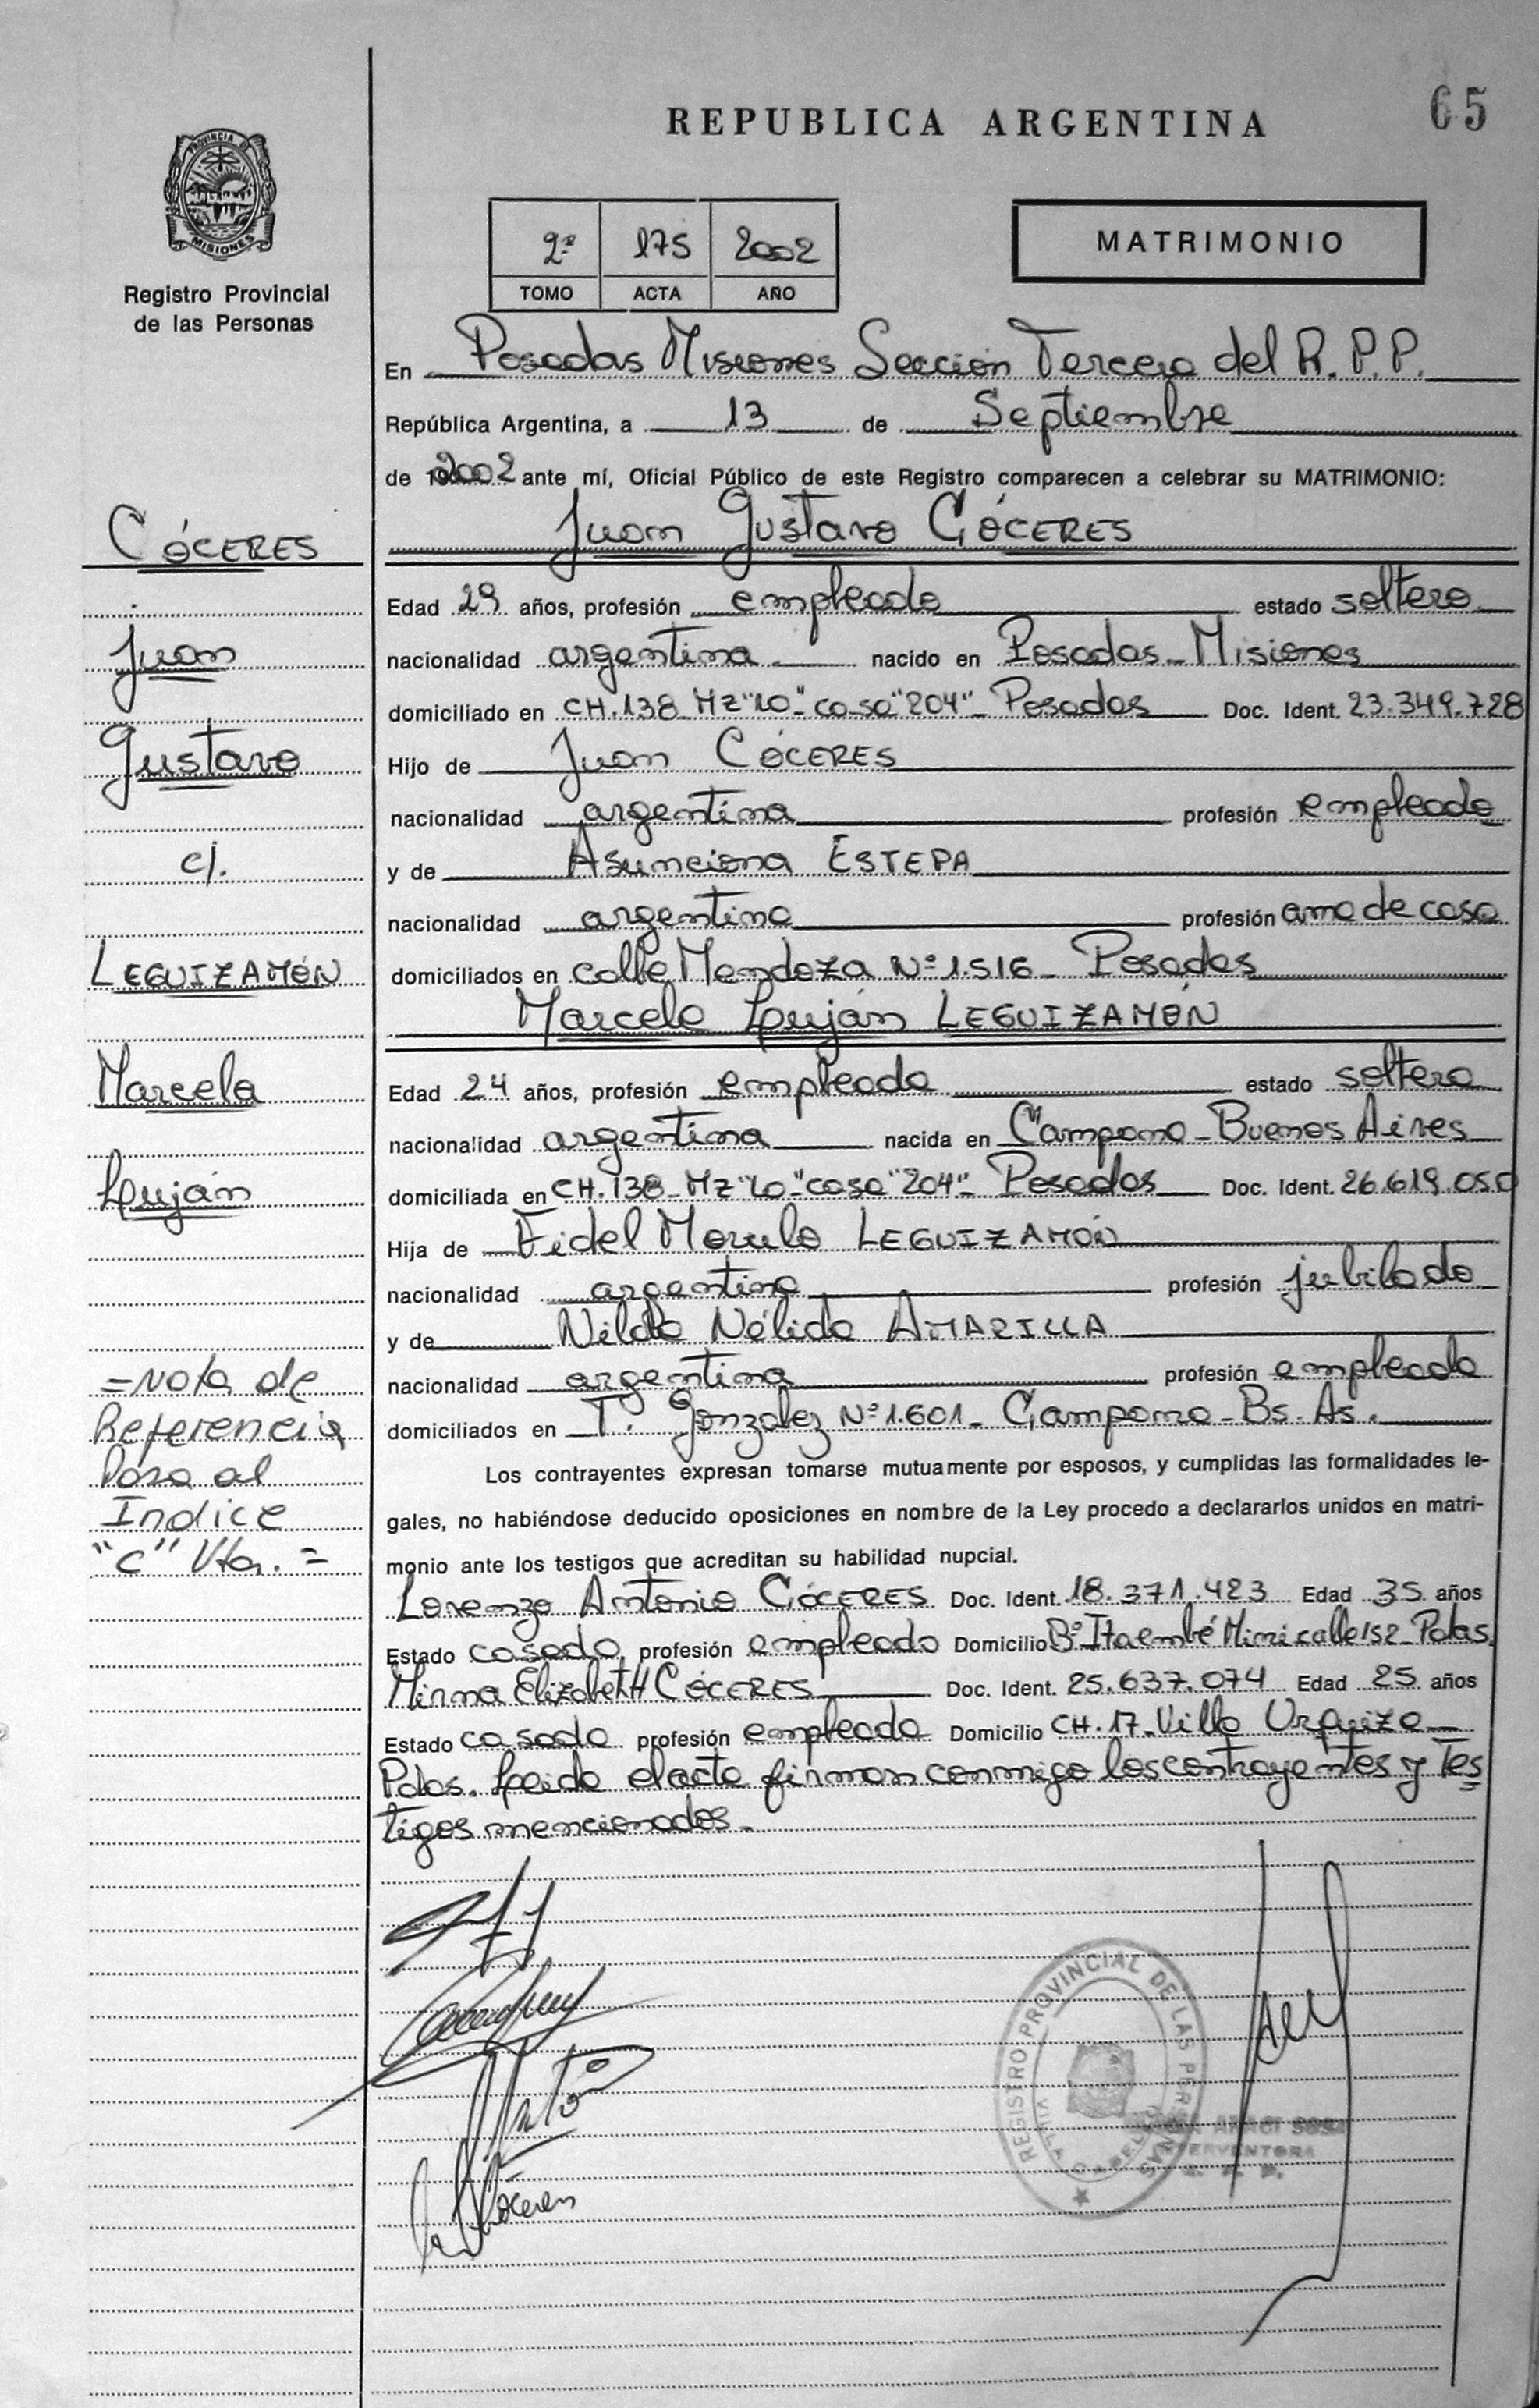 65
REPUBLICA ARGENTINA
PROVINCIA DE
MISIONES
Registro Provincial
de las Personas
2º 175 2002
TOMO ACTA AÑO
MATRIMONIO
En Posadas Misiones Sección Tercera del R.P.P.
República Argentina, a 13 de Septiembre
de 2002 ante mí, Oficial Público de este Registro comparecen a celebrar su MATRIMONIO:
Juan Gustavo CÓCERES
Edad 29 años, profesión empleado estado soltero
nacionalidad argentina nacido en Posadas - Misiones
domiciliado en CH.138 Mz "20" - casa "204" - Posadas Doc. Ident. 23.349.728
Hijo de Juan CÓCERES
nacionalidad argentina profesión empleado
y de Asunciona ESTEPA
nacionalidad argentina profesión ama de casa
domiciliados en calle Mendoza Nº 1.516 - Posadas
Marcela Luján LEGUIZAMÓN
Edad 24 años, profesión empleada estado soltera
nacionalidad argentina nacida en Campana - Buenos Aires
domiciliada en CH.138 - Mz "20" - casa "204" - Posadas Doc. Ident. 26.619.050
Hija de Fidel LEGUIZAMÓN
nacionalidad argentina profesión jubilado
y de Nilda Nélida AMARILLA
nacionalidad argentina profesión empleada
domiciliados en T. Gonzalez Nº 1.601 - Campana - Bs. As.
Los contrayentes expresan tomarse mutuamente por esposos, y cumplidas las formalidades le-
gales, no habiéndose deducido oposiciones en nombre de la Ley procedo a declararlos unidos en matri-
monio ante los testigos que acreditan su habilidad nupcial.
Lorenzo Antonio CÓCERES Doc. Ident. 18.371.423 Edad 35 años
Estado casado profesión empleado Domicilio Bº Itaembé Mini calle 152 - Pdas.
Mirna Elizabeth CÓCERES Doc. Ident. 25.637.074 Edad 25 años
Estado casada profesión empleada Domicilio CH. 17 - Villa Urquiza -
Pdas. Leida el acta firman conmigo los contrayentes y Tes
tigos mencionados.
CÓCERES
Juan
Gustavo
c/.
LEGUIZAMÓN
Marcela
Luján
=Nota de
Referencia
Pasa al
Indice
"C" Vta. =
REGISTRO PROVINCIAL DE LAS PERSONAS
ARACI SOSA
INTERVENTORA